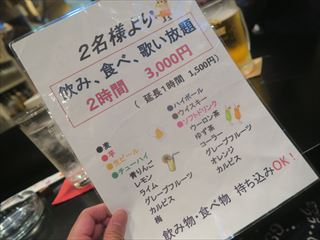 2名様より
飲み、食べ、歌い放題
2時間 3,000円
( 延長1時間 1,500円)
●麦
●芋
●生ビール
●チューハイ
青りんご
レモン
ライム
グレープフルーツ
カルピス
梅
●ハイボール
●ウイスキー
●ソフトドリンク
ウーロン茶
ゆず茶
コーラ
グレープフルーツ
オレンジ
カルピス
飲み物・食べ物 持ち込みOK!